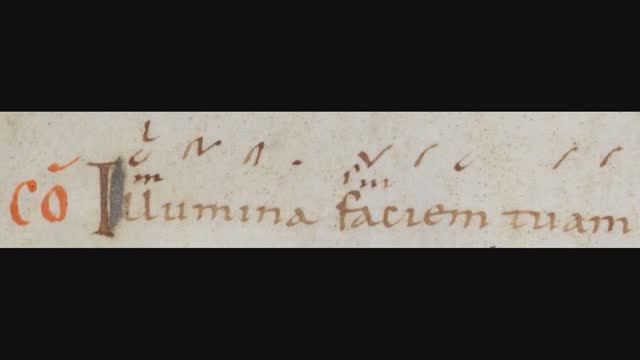 Cō Illumina faciem tuam